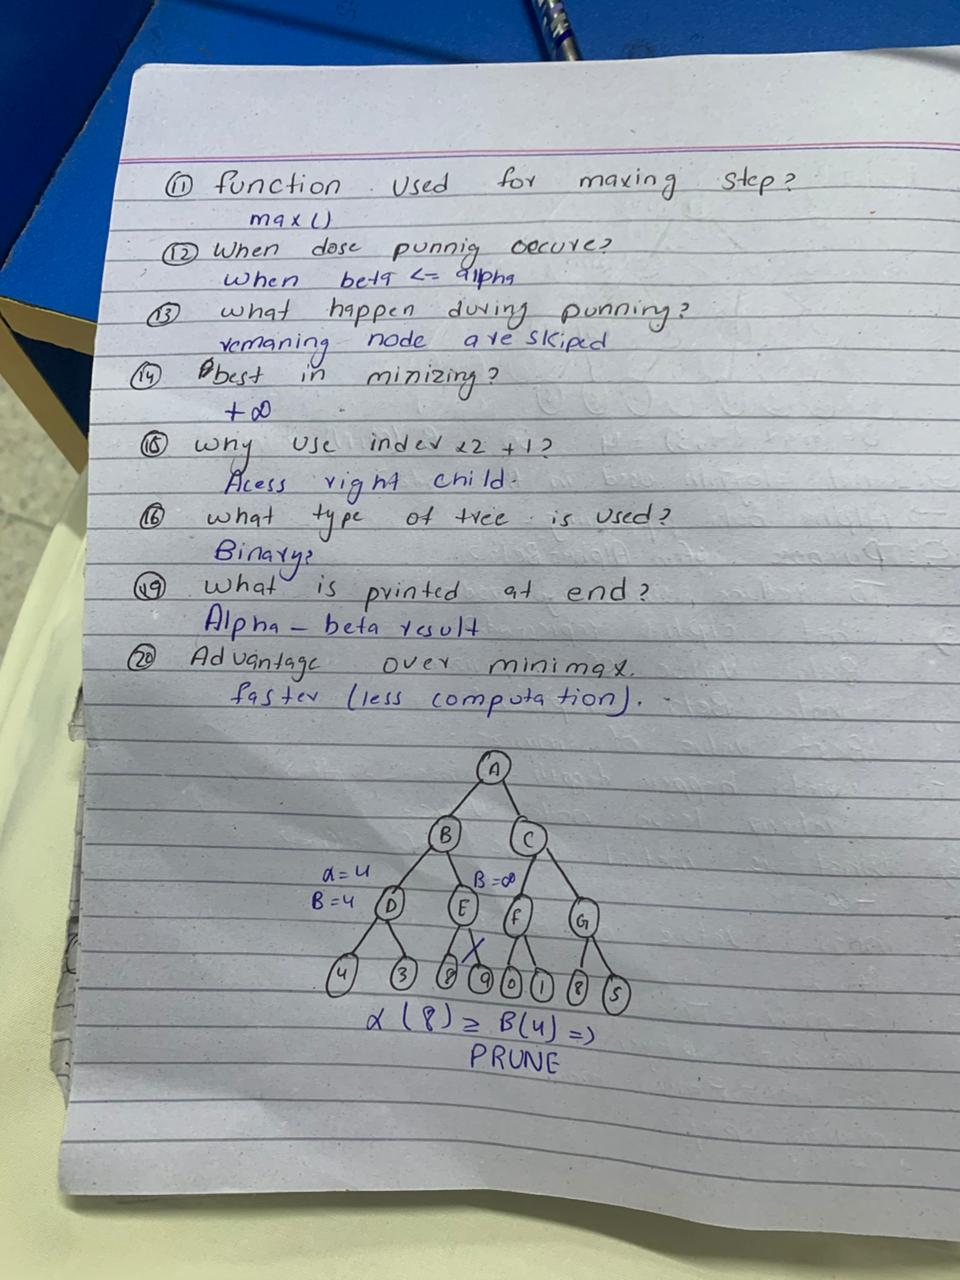 11 function used for maxing step?
max()
12 When dose punnig occure?
When beta <= alpha
13 what happen during punning?
remaning node are skiped
14 best in minizing?
+∞
15 why use index x2 +1?
Acess right child.
16 what type of tree is used?
Binary?
19 What is printed at end?
Alpha - beta result
20 Advantage over minimax.
faster (less computation).
A
B C
α=4 B=∞
B=4 D E F G
4 3 8 9 0 1 8 5
α (8) ≥ B(4) =>
PRUNE